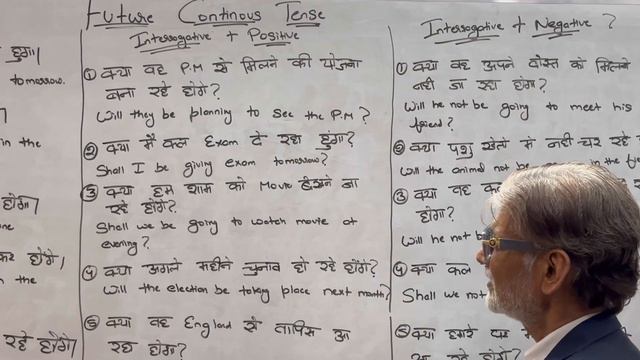 Future Continous Tense
Interrogative + Positive
① क्या वह P.M से मिलने की योजना
बना रहे होंगे?
Will they be planning to see the P.M?
② क्या मैं कल Exam दे रहा हुंगा?
Shall I be giving exam tomorrow?
③ क्या हम शाम को Movie देखने जा
रहे होंगे?
Shall we be going to watch movie at
evening?
④ क्या अगले महीने चुनाव हो रहे होंगे?
Will the election be taking place next month?
⑤ क्या वह England से वापिस आ
रहा होगा?
Interrogative + Negative?
① क्या वह अपने दोस्त को मिलने
नही जा रहा होगा?
Will he not be going to meet his
friend?
② क्या पशु खेतों में नही चर रहे
Will the animal not be in the
③ क्या वह
होगा?
Will he not b
④ क्या कल
Shall we not
⑤ क्या हमारे
रहे होंगे?
हुंगा।
tomorrow.
in the
होगा।
होंगे।
the
रहे होंगे।